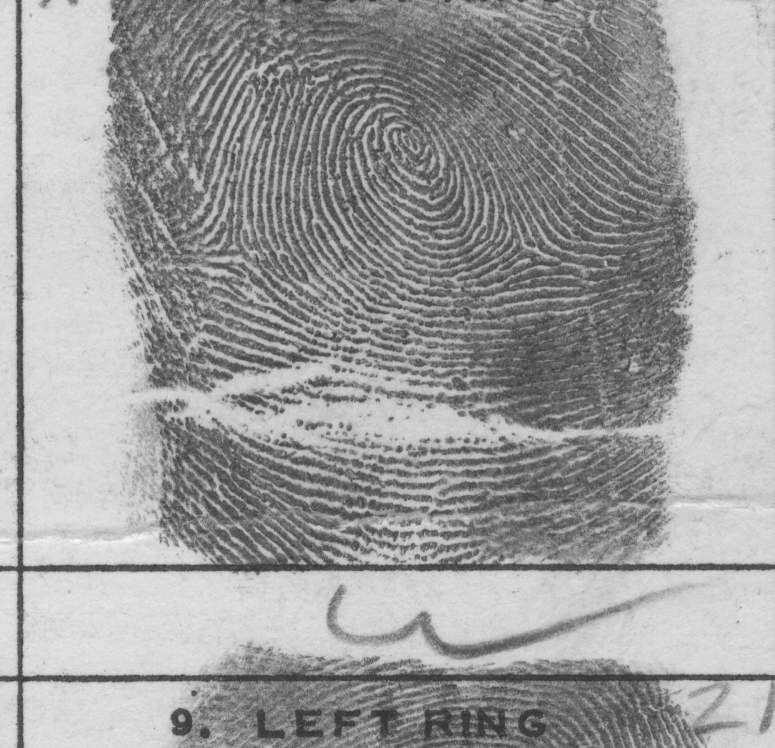 w
9. LEFT RING 21